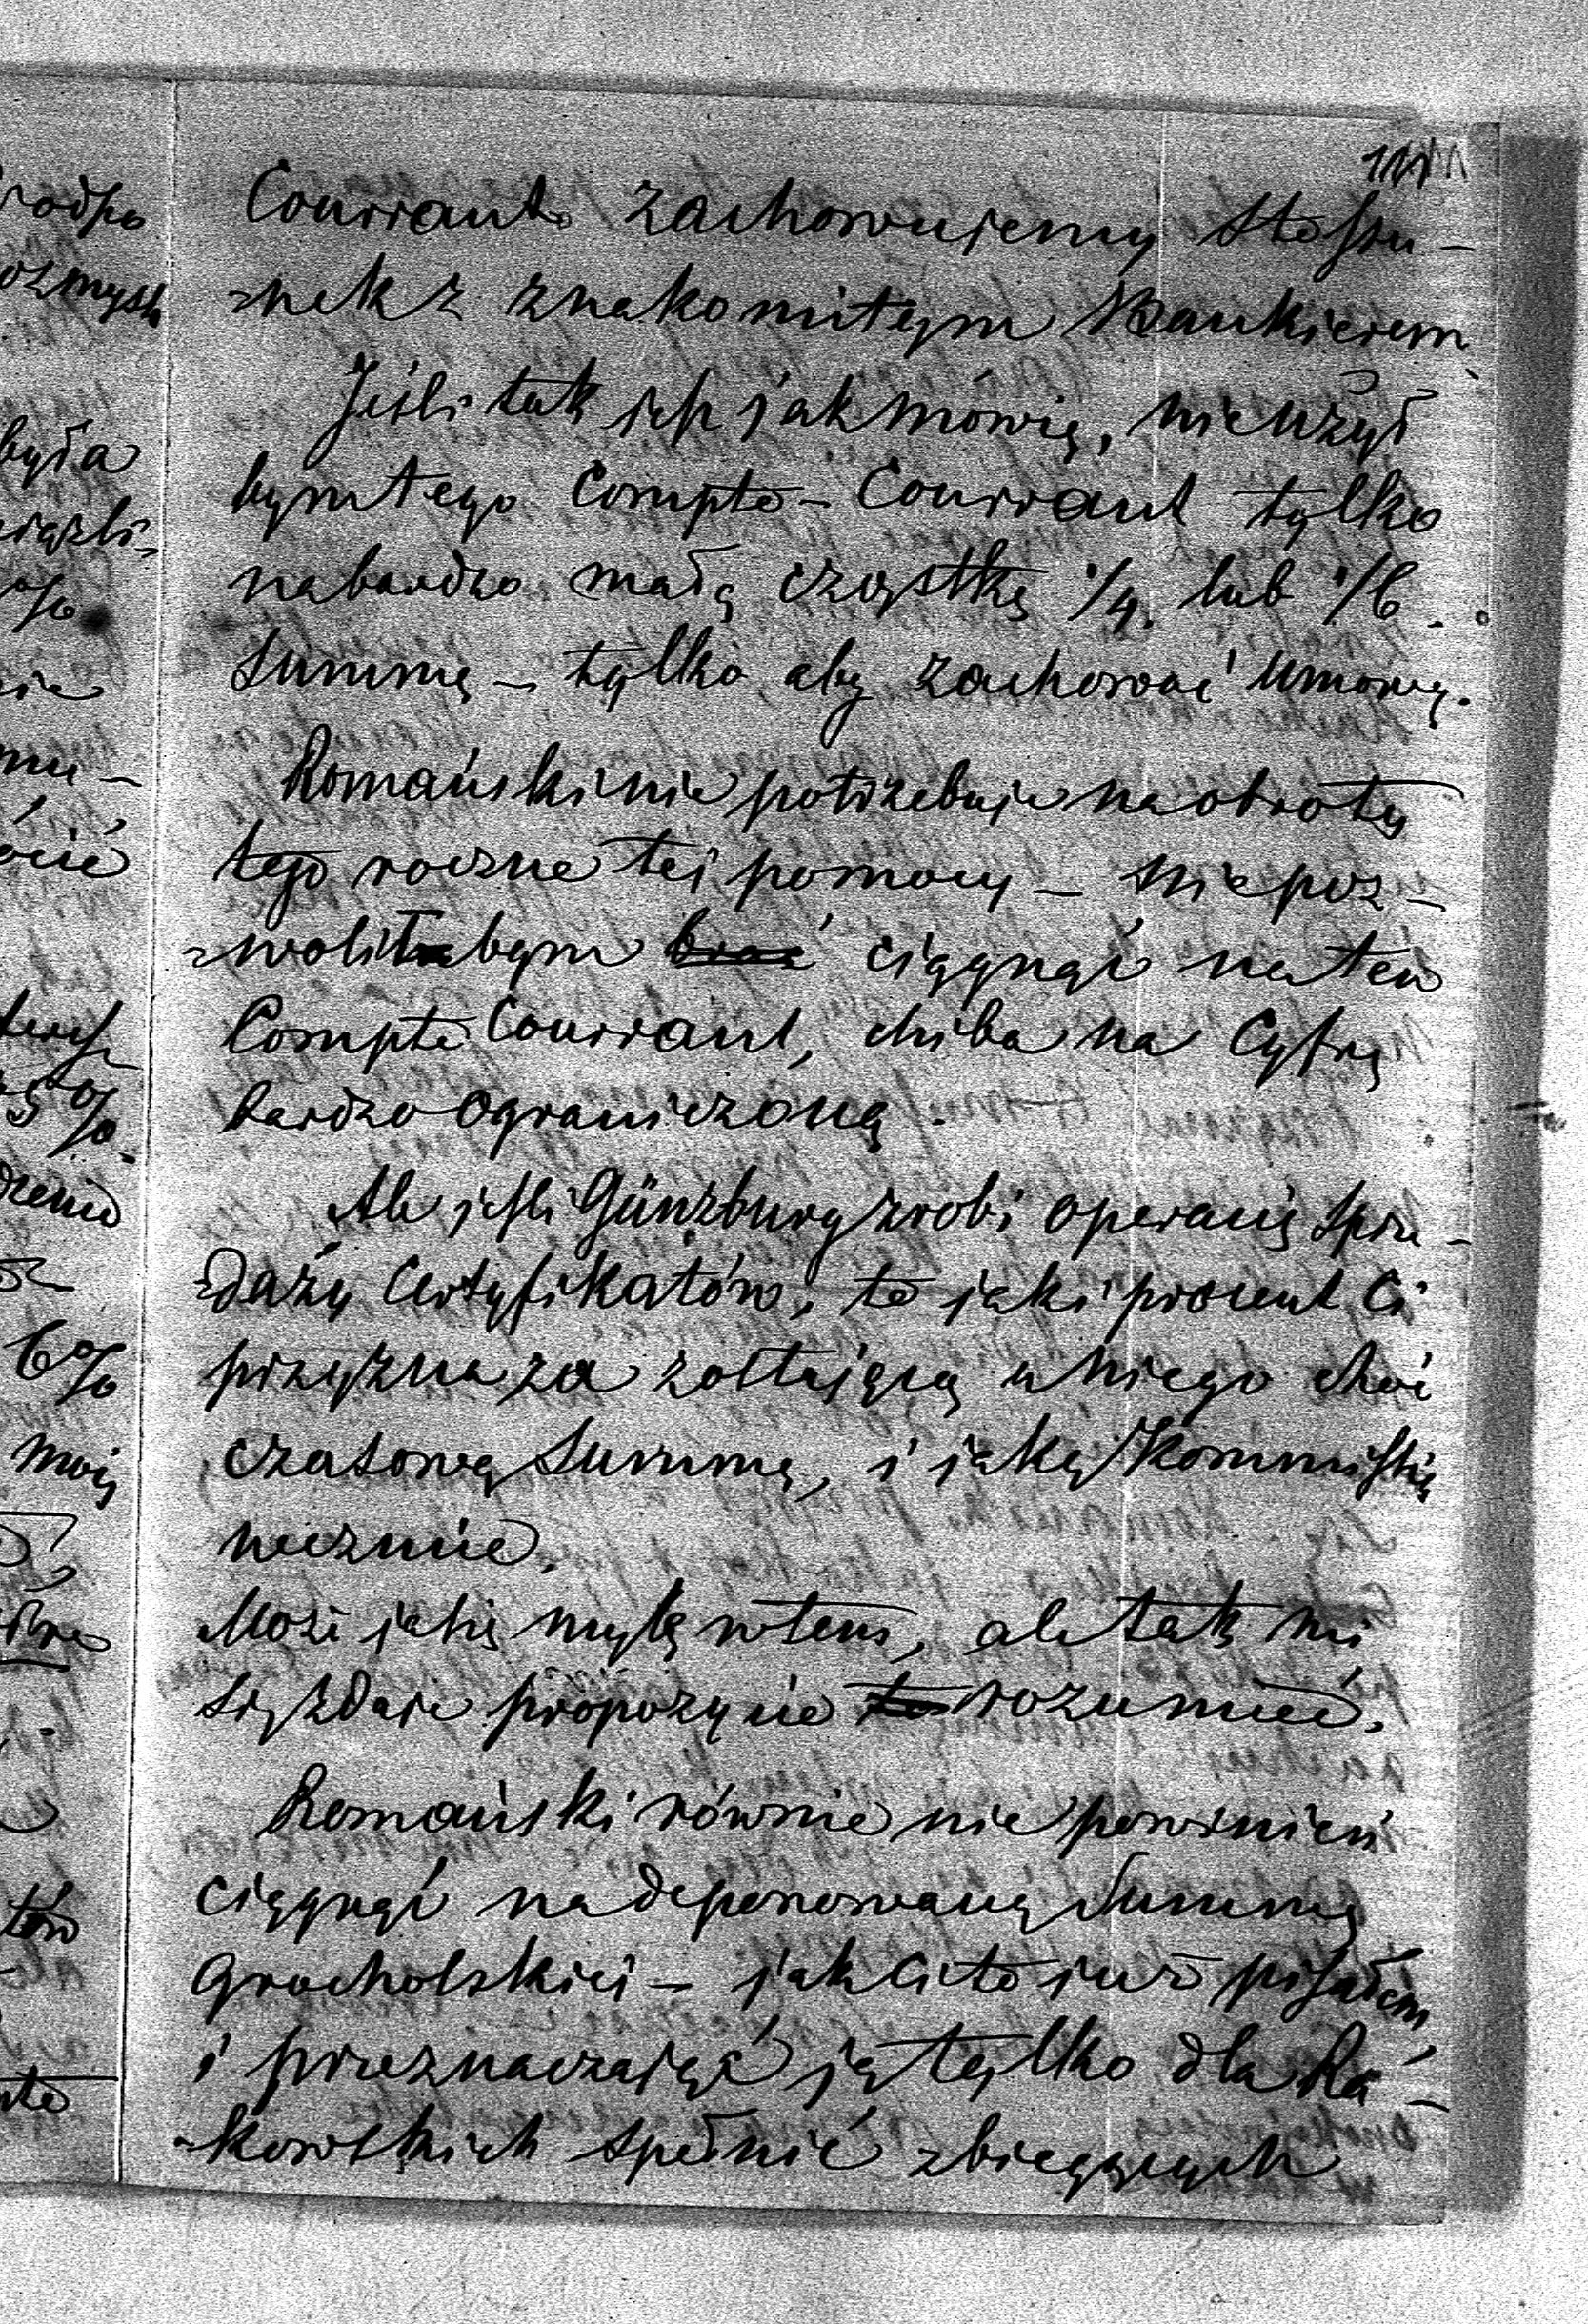 111
Courrant zachowujemy stossu-
-nek z znakomitym Bankierem
Jeśli tak jest jak mówię, nie użył
bym tego Compte-Courrant tylko
na bardzo małą cząstkę 1/4. lub 1/6.
Summę - tylko aby zachować umowę.
Romański nie potrzebuje na obroty
tego roczne tej pomocy - nie poz-
-wolił bym ciągnąć na ten
Compte Courrant, chiba na Cyfrę
bardzo ograniczoną.
Ale jeśli Günzburg zrobi operacię sprze-
-daży Certyfikatów, to jaki procent Ci
przyzna za zostającą u niego choć
czasową Summę, i jaką Kommissię
weźmie.
Może ja się mylę w tem, ale tak mi
się zdaje propozycie rozumieć.
Romański równie nie powinien
ciągnąć na deponowaną Summę
Grocholskiej - jak Ci to już pisałem
i przeznaczając ją tylko dla Ra-
-kowskich spełnić zbiegających